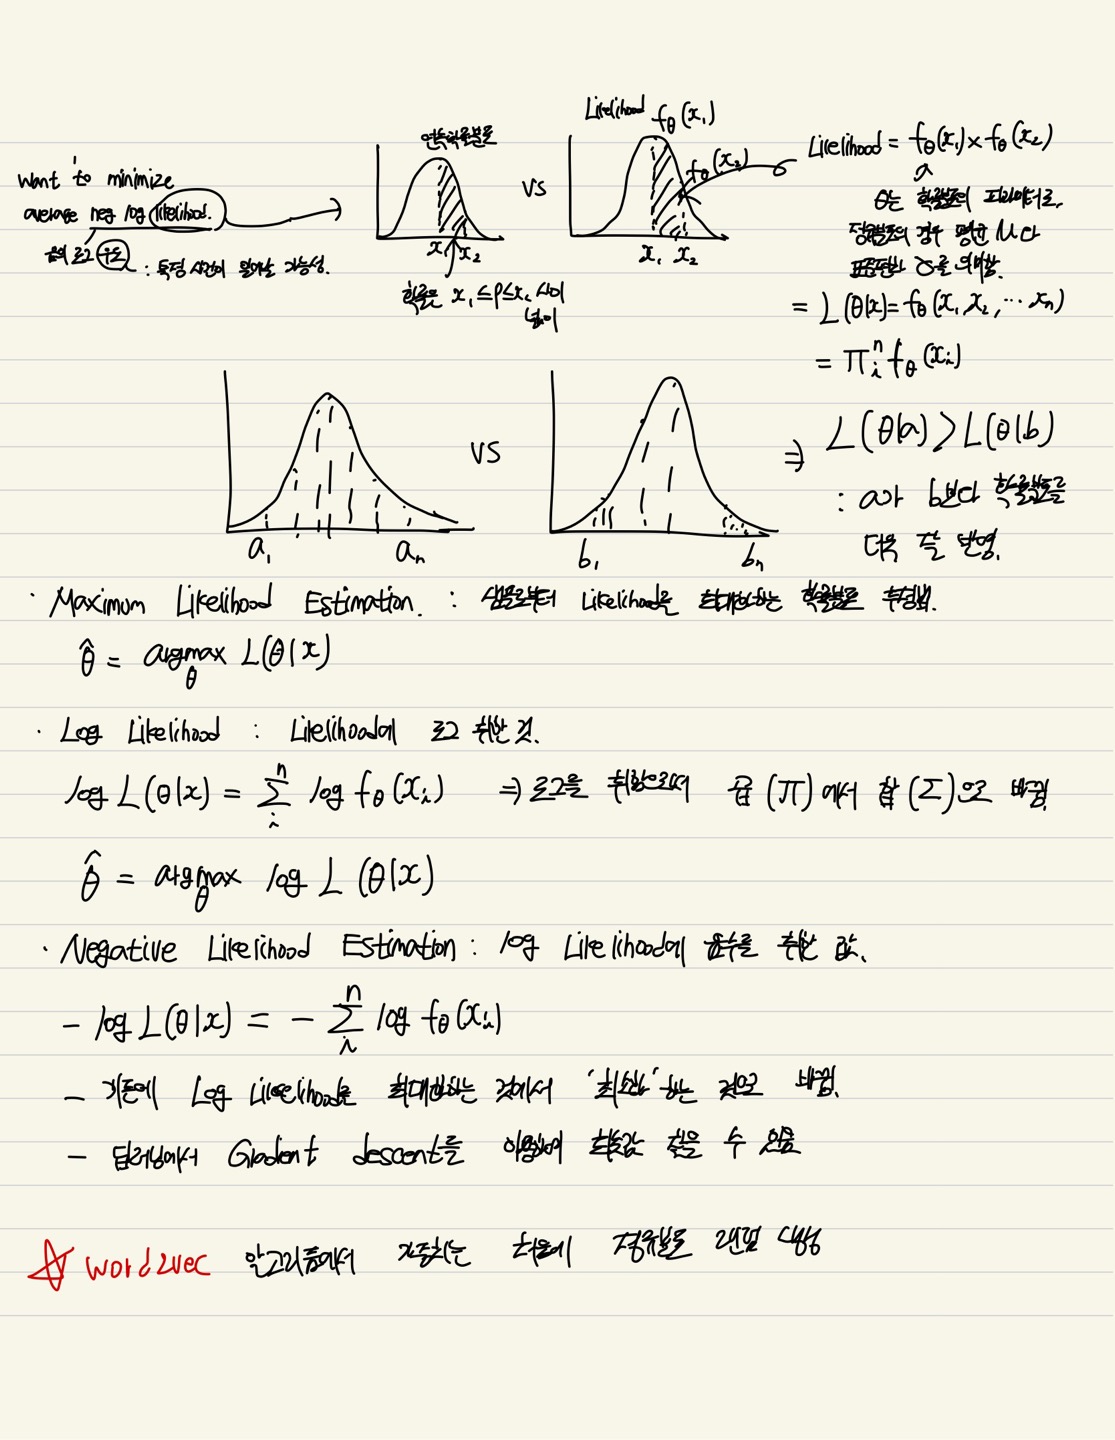 Want to minimize
average neg log likelihood.
음의 로그 우도
: 특정 사건이 일어날 가능성.
연속확률분포
x₁ x₂
확률은 x₁ ≤ p ≤ x₂ 사이
넓이
VS
Likelihood f_θ(x₁)
f_θ(x₂)
x₁ x₂
Likelihood = f_θ(x₁) × f_θ(x₂)
θ는 확률분포의 파라미터로,
정규분포의 경우 평균 μ다
표준편차 σ를 의미함.
= L(θ|x) = f_θ(x₁, x₂, ⋯ xₙ)
= Πᵢⁿ f_θ(xᵢ)
a₁ aₙ
VS
b₁ bₙ
⇒ L(θ|a) > L(θ|b)
: a가 b보다 확률분포를
더욱 잘 반영.
· Maximum Likelihood Estimation. : 샘플로부터 Likelihood를 최대화하는 확률분포 추정법.
θ̂ = argmax_θ L(θ|x)
· Log Likelihood : Likelihood에 로그 취한 것.
log L(θ|x) = Σᵢⁿ log f_θ(xᵢ) ⇒ 로그를 취함으로써 곱(Π)에서 합(Σ)으로 바뀜
θ̂ = argmax_θ log L(θ|x)
· Negative Likelihood Estimation : log Likelihood에 음수를 취한 값.
− log L(θ|x) = − Σᵢⁿ log f_θ(xᵢ)
− 기존에 Log Likelihood를 최대화하는 것에서 '최소화'하는 것으로 바뀜.
− 딥러닝에서 Gradient descent를 이용하여 최솟값 찾을 수 있음
☆ word2vec 알고리즘에서 가중치는 처음에 정규분포 랜덤 생성